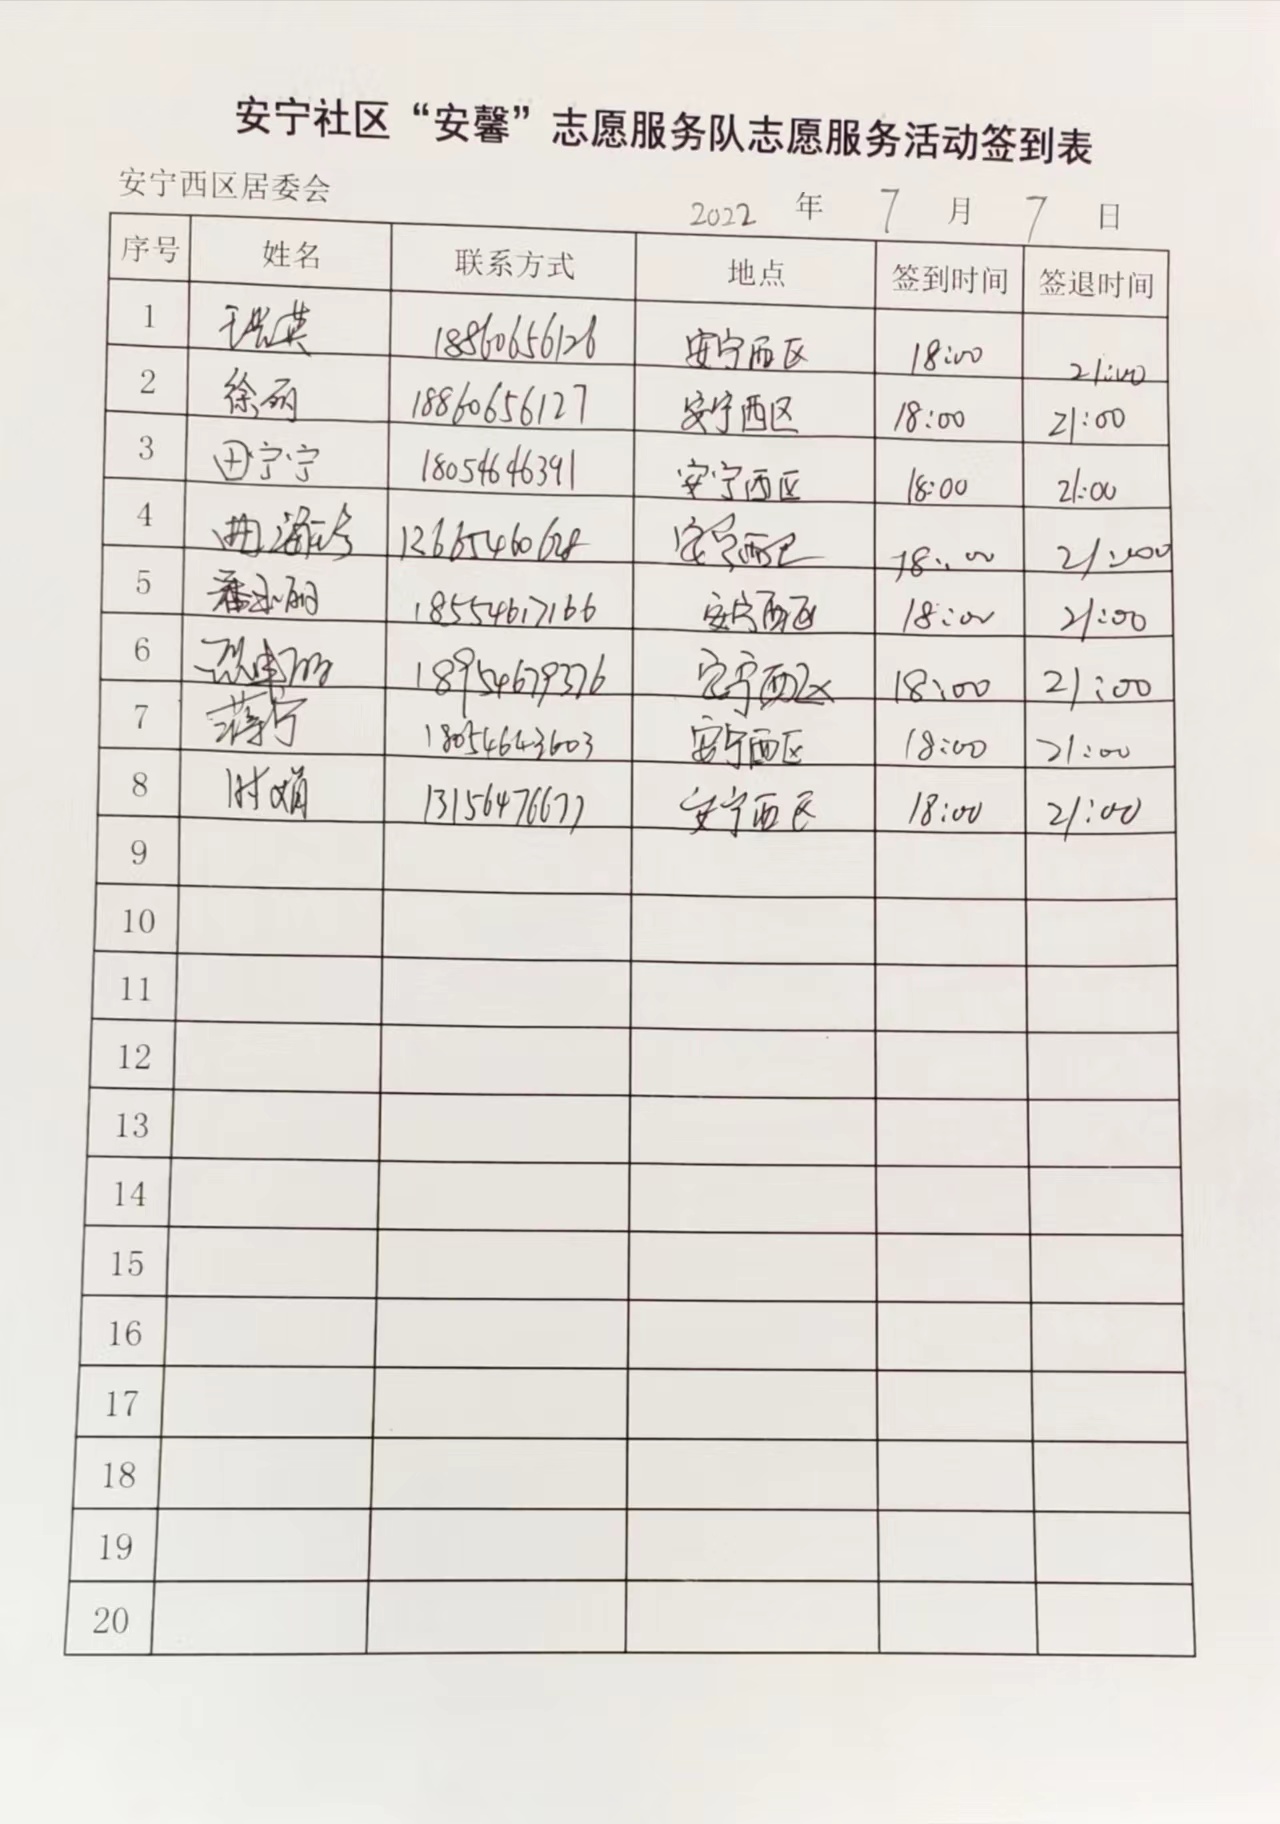 安宁社区“安馨”志愿服务队志愿服务活动签到表
安宁西区居委会 2022 年 7 月 7 日
序号 姓名 联系方式 地点 签到时间 签退时间
1 18860656126 安宁西区 18:00 21:00
2 徐丽 18860656127 安宁西区 18:00 21:00
3 田宁宁 18054646391 安宁西区 18:00 21:00
4 安宁西区 18:00 21:00
5 18554617166 安宁西区 18:00 21:00
6 18954679376 安宁西区 18:00 21:00
7 蒋宁 18054643603 安宁西区 18:00 21:00
8 时娟 13156476677 安宁西区 18:00 21:00
9
10
11
12
13
14
15
16
17
18
19
20